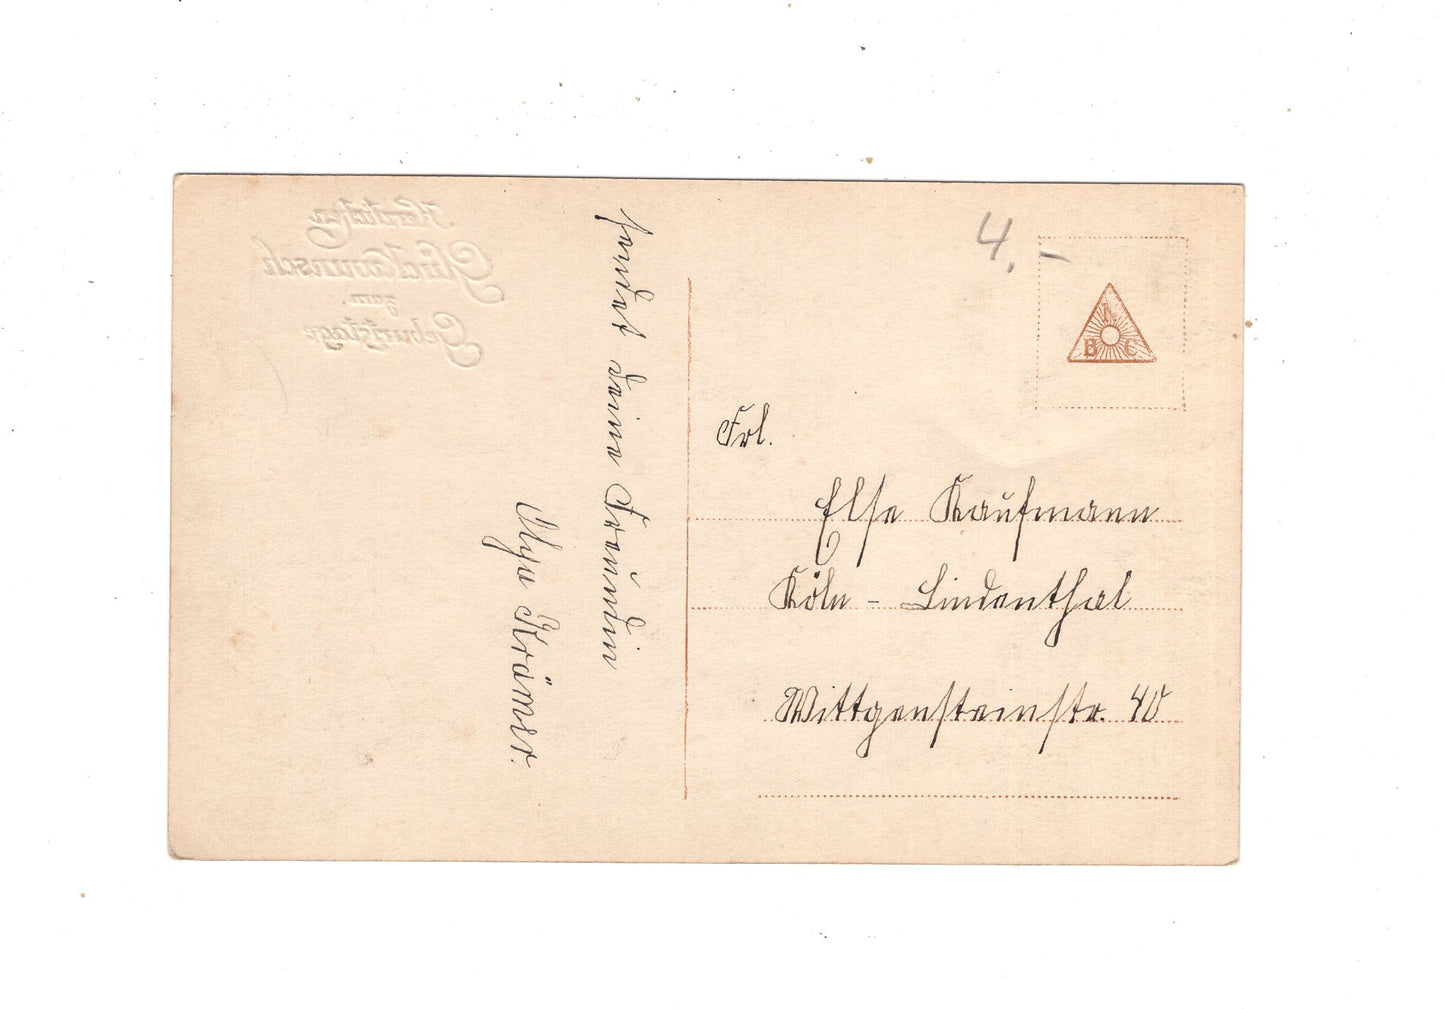 Herzlichen
Glückwunsch
zum
Geburtstage
sendet deine Freundin
Krämer.
4,-
A
B C
Frl.
Else Kaufmann
Köln - Lindenthal
Wittgensteinstr. 40